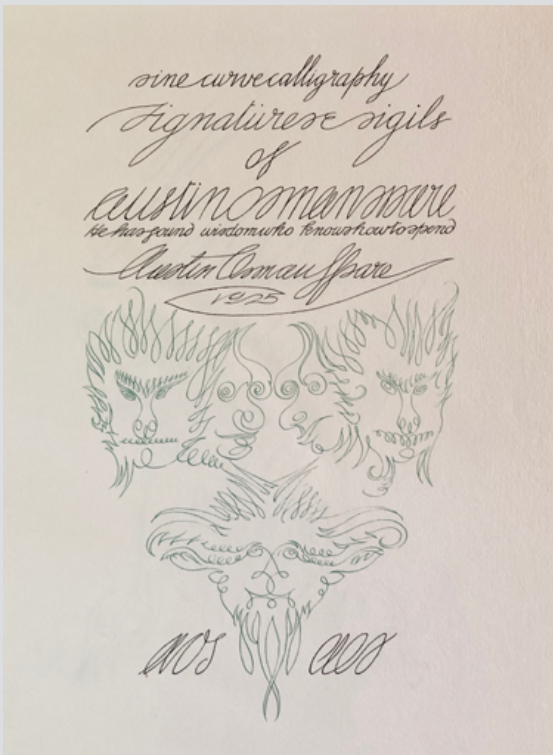 sine curve calligraphy
signatures & sigils
of
austin osman spare
He has found wisdom who knows how to spend
Austin Osman Spare
1925
aos aos